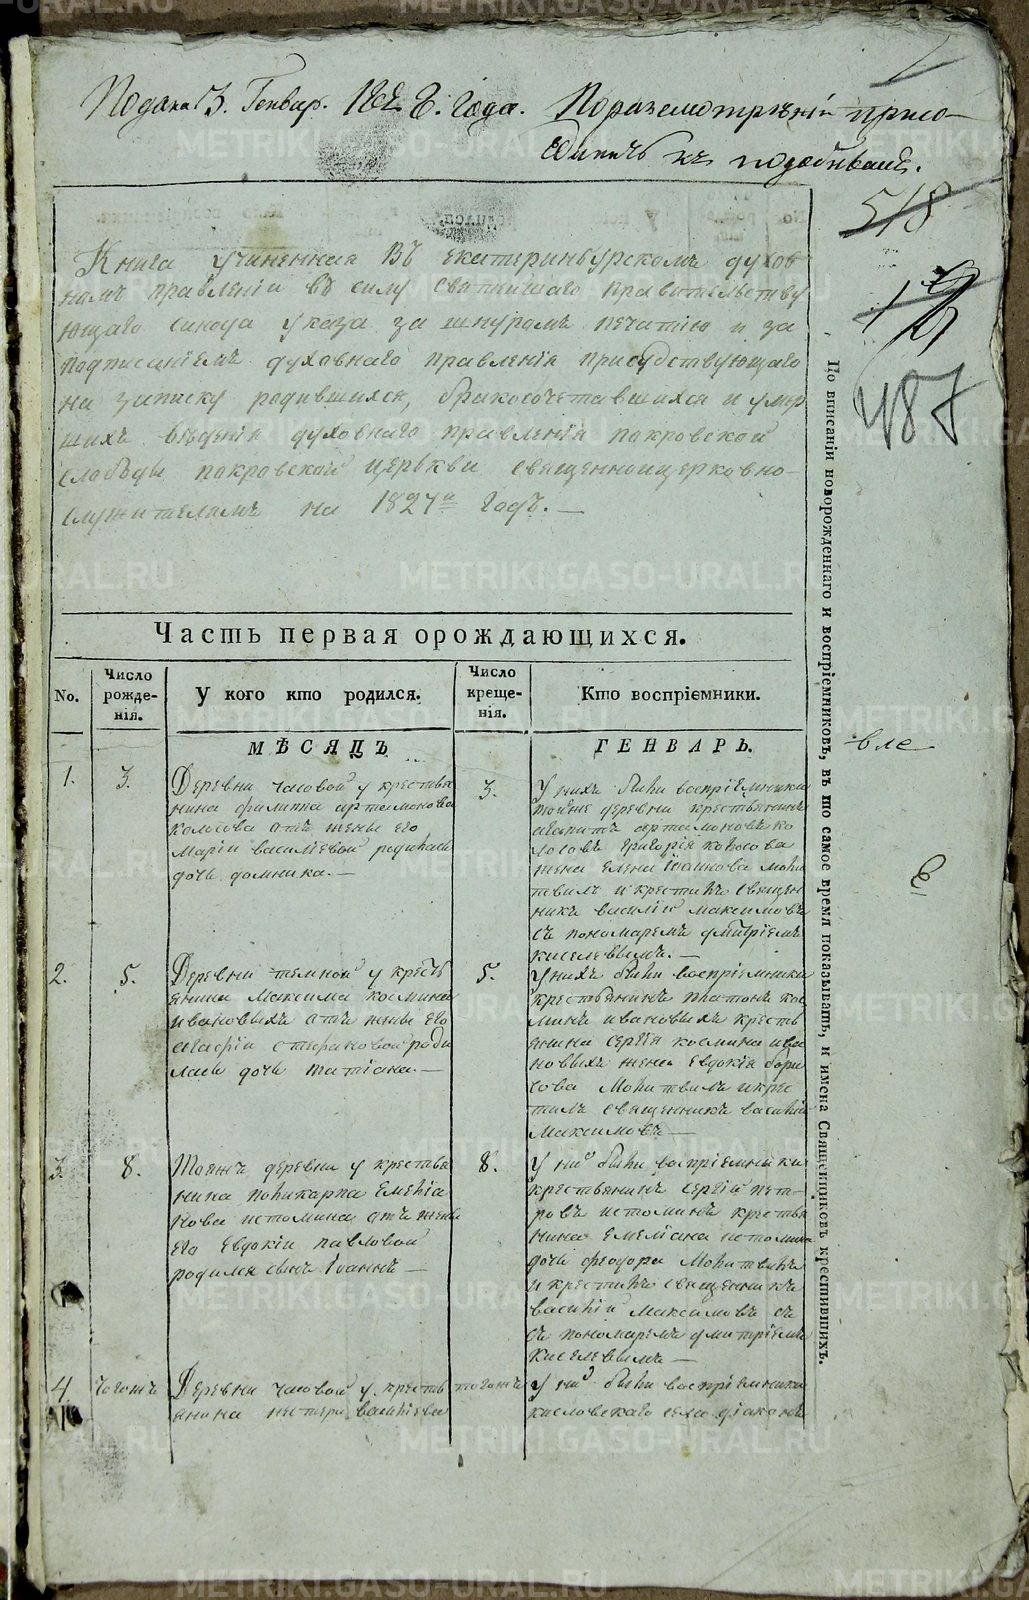 Подана 3. Генвар. 1828. года. По разсмотрѣніи присо-
единить къ подобнымъ.
518
487
Книга учиненная въ екатеринбурскомъ духов
номъ правленіи въ силу святѣйшаго правительству
ющаго синода указа за шнуромъ печатію и за
подписаніемъ духовнаго правленія присудствующаго
на записку родившихся, бракосочетавшихся и умер
шихъ вѣденія духовнаго правленія покровской
слободы покровской церькви священноицерковно-
служителямъ на 1827й годъ.—
Часть первая орождающихся.
No.
Число рожде-нія.
У кого кто родился.
Число креще-нія.
Кто воспріемники.
МѢСЯЦЪ
ГЕНВАРЬ.
1.
3.
Деревни часовой у крестья
нина филипа артамонова
колосова отъ жены его
Маріи василіевой родилась
дочь домника.—
3.
У нихъ были воспріемники
тойже деревни крестьянинъ
артамоновъ ко
лосовъ григорія колосова
жена Елена Іоаннова моли
твилъ и крестилъ священ
никъ василій максимовъ
съ пономаремъ дмитріемъ
киселевымъ.—
2.
5.
Деревни темной у кресть
янина Максима космина
ивановыхъ отъ жены его
агафіи стефановой роди
лась дочь татіана.—
5.
У нихъ были воспріемники
крестьянинъ платонъ кос
минъ ивановыхъ кресть
янина сергія космина ива
новыхъ жена Евдокія бори
сова Молитвилъ икрес
тилъ священникъ василій
Максимовъ—
3.
8.
Тояжъ деревни у крестья
нина поликарпа Емеліа
нова истомина отъ жены
его Евдокіи павловой
родился сынъ Іоаннъ—
8.
У ни были воспріемники
крестьянинъ сергій пет-
ровъ истоминъ крестья
нина Емеліана истомина
дочь феодора Молитвилъ
и крестилъ священникъ
василій максимовъ съ
съ пономаремъ дмитріемъ
киселевымъ—
4
тогожъ
Деревни часовой у кресть
янина нестера василіева
тогожъ
У ни были воспріемники
кисловскаго села діаконъ
До вписаніи новорожденнаго и воспріемниковъ, въ то самое время показывать, и имена Священниковъ крестившихъ.